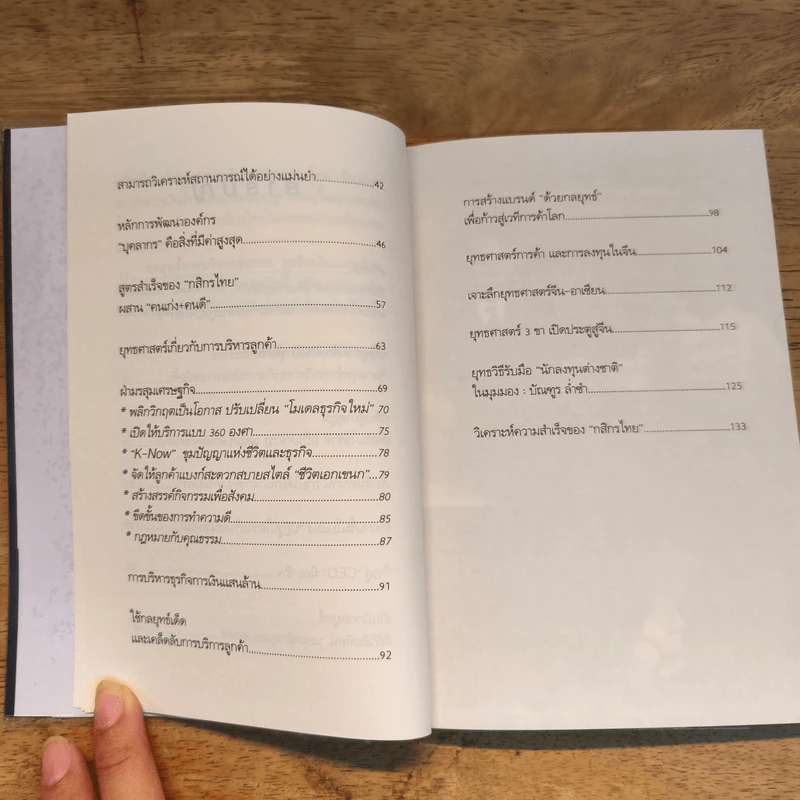 สามารถวิเคราะห์สถานการณ์ได้อย่างแม่นยำ....................42
หลักการพัฒนาองค์กร
"บุคลากร" คือสิ่งที่มีค่าสูงสุด....................46
สูตรสำเร็จของ "กสิกรไทย"
ผสาน "คนเก่ง+คนดี"....................57
ยุทธศาสตร์เกี่ยวกับการบริหารลูกค้า....................63
ฝ่ามรสุมเศรษฐกิจ....................69
* พลิกวิกฤตเป็นโอกาส ปรับเปลี่ยน "โมเดลธุรกิจใหม่" 70
* เปิดให้บริการแบบ 360 องศา....................75
* "K-Now" ขุมปัญญาแห่งชีวิตและธุรกิจ....................78
* จัดให้ลูกค้าแบงก์สะดวกสบายสไตล์ "ชีวิตเอกเขนก"...79
* สร้างสรรค์กิจกรรมเพื่อสังคม....................80
* ขีดขั้นของการทำความดี....................85
* กฎหมายกับคุณธรรม....................87
การบริหารธุรกิจการเงินแสนล้าน....................91
ใช้กลยุทธ์เด็ด
และเคล็ดลับการบริการลูกค้า....................92
การสร้างแบรนด์ "ด้วยกลยุทธ์"
เพื่อก้าวสู่เวทีการค้าโลก....................98
ยุทธศาสตร์การค้า และการลงทุนในจีน....................104
เจาะลึกยุทธศาสตร์จีน-อาเซียน....................112
ยุทธศาสตร์ 3 ขา เปิดประตูสู่จีน....................115
ยุทธวิธีรับมือ "นักลงทุนต่างชาติ"
ในมุมมอง : บัณฑูร ล่ำซำ....................125
วิเคราะห์ความสำเร็จของ "กสิกรไทย"....................133